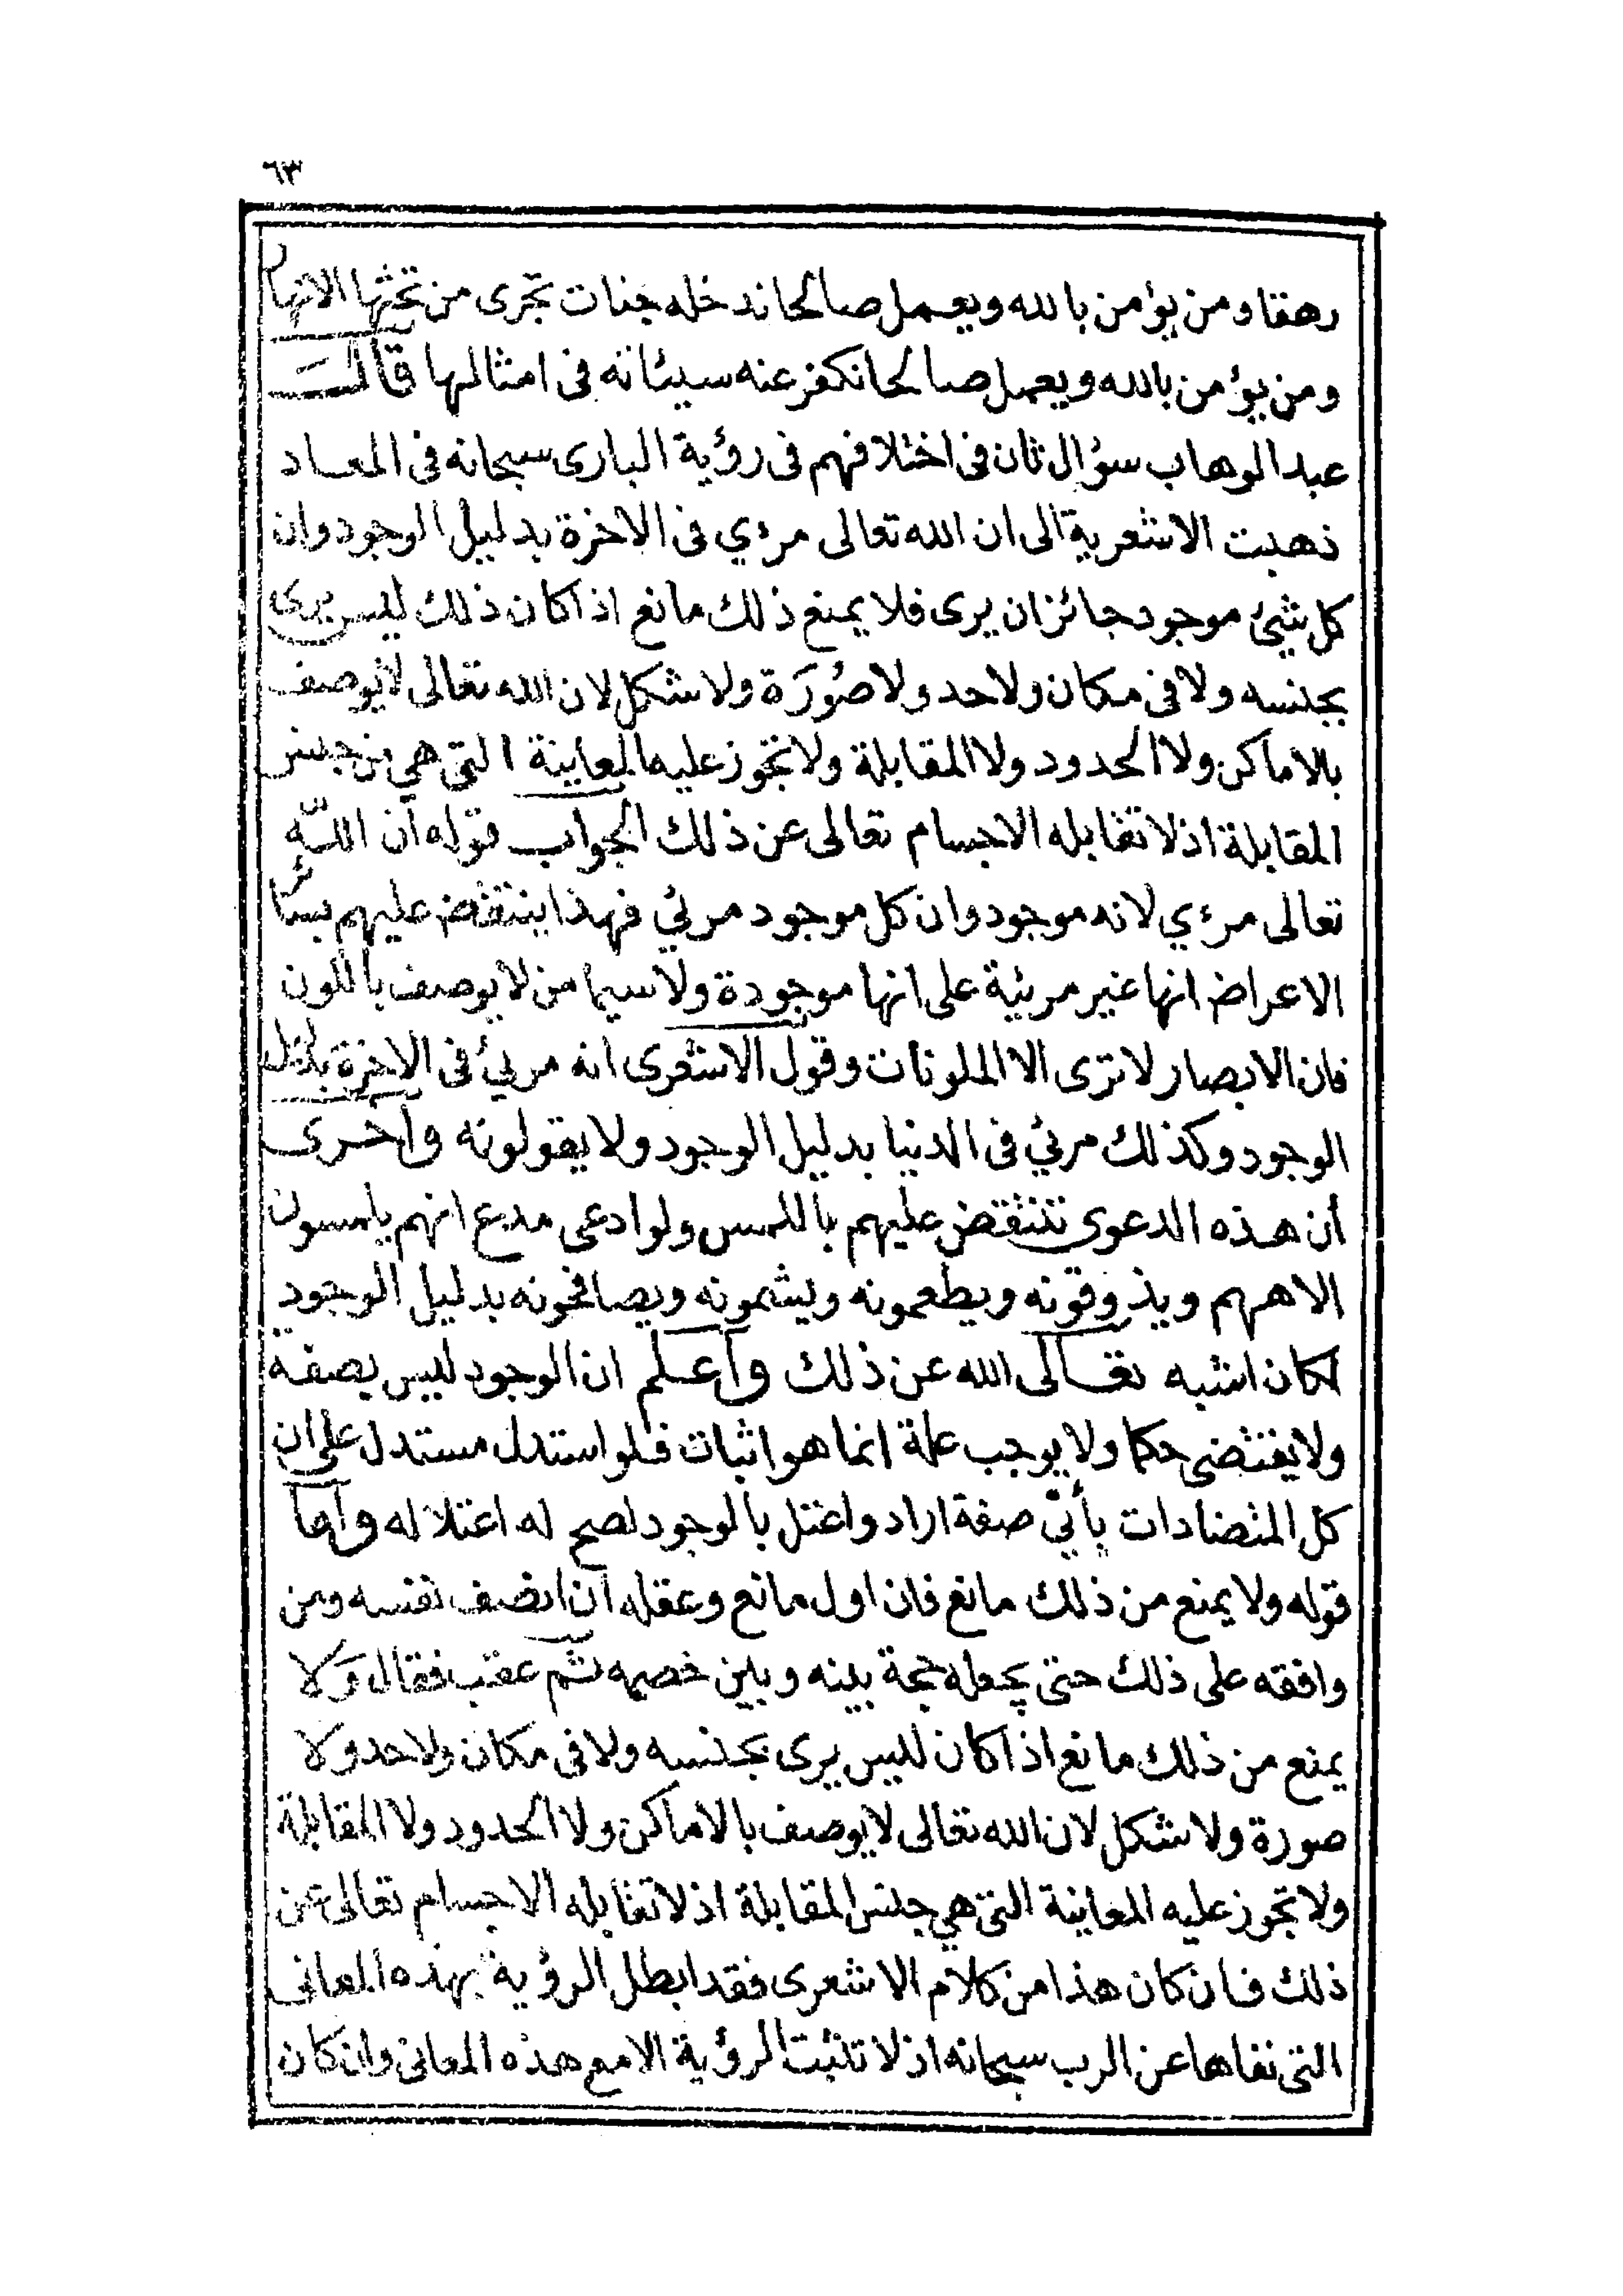 ٦٣
رهقا ومن يؤمن بالله ويعمل صالحا ندخله جنات تجرى من تحتها الانهار
ومن يؤمن بالله ويعمل صالحا نكفر عنه سيئاته فى امثالها قالـــ
عبد الوهاب سؤال ثان فى اختلافهم فى رؤية البارى سبحانه فى المعاد
ذهبت الاشعرية الى ان الله تعالى مرءي فى الاخرة بدليل الوجود وان
كل شيئ موجود جائز ان يرى فلا يمنع ذلك مانع اذا كان ذلك ليس يرى
بجنسه ولا فى مكان ولا حد ولا صُورَة ولا شكل لان الله تعالى لا يوصف
بالاماكن ولا الحدود ولا المقابلة ولا تجوز عليه المعاينة التى هي من جنس
المقابلة اذ لا تقابله الاجسام تعالى عن ذلك الجواب قوله أن اللّه
تعالى مرءي لانه موجود وان كل موجود مرئي فهذا ينتقض عليهم بسائر
الاعراض انها غير مرئية على انها موجودة ولا سيما من لا يوصف باللون
فان الابصار لا ترى الا الملونات وقول الاشعرى انه مرئي فى الاخرة بدليل
الوجود وكذلك مرئي فى الدنيا بدليل الوجود ولا يقولونه وأخرى
أن هذه الدعوى تنتقض عليهم باللمس ولو ادعى مدع انهم يلمسون
الاههم ويذوقونه ويطعمونه ويشمونه ويصافحونه بدليل الوجود
لكان اشبه تعالى الله عن ذلك وآعلم ان الوجود ليس بصفة
ولا يقتضى حكما ولا يوجب علة انما هو اثبات فلو استدل مستدل على ان
كل المتضادات بأيّ صفة اراد واعتل بالوجود لصح له اعتلاله وآما
قوله ولا يمنع من ذلك مانع فان اول مانع وعقله ان انصف نفسه ومن
وافقه على ذلك حتى يجعله حجة بينه وبين خصمه ثم عقب فقال وَلا
يمنع من ذلك مانع اذا كان لليس يرى بجنسه ولا فى مكان ولا حد ولا
صورة ولا شكل لان الله تعالى لا يوصف بالاماكن ولا الحدود ولا المقابلة
ولا تجوز عليه المعاينة التى هي جنس المقابلة اذ لا تقابله الاجسام تعالى عن
ذلك فان كان هذا من كلام الاشعرى فقد ابطل الرؤية بهذه المعانى
التى نفاها عن الرب سبحانه اذ لا تثبت الرؤية الا مع هذه المعانى وان كان